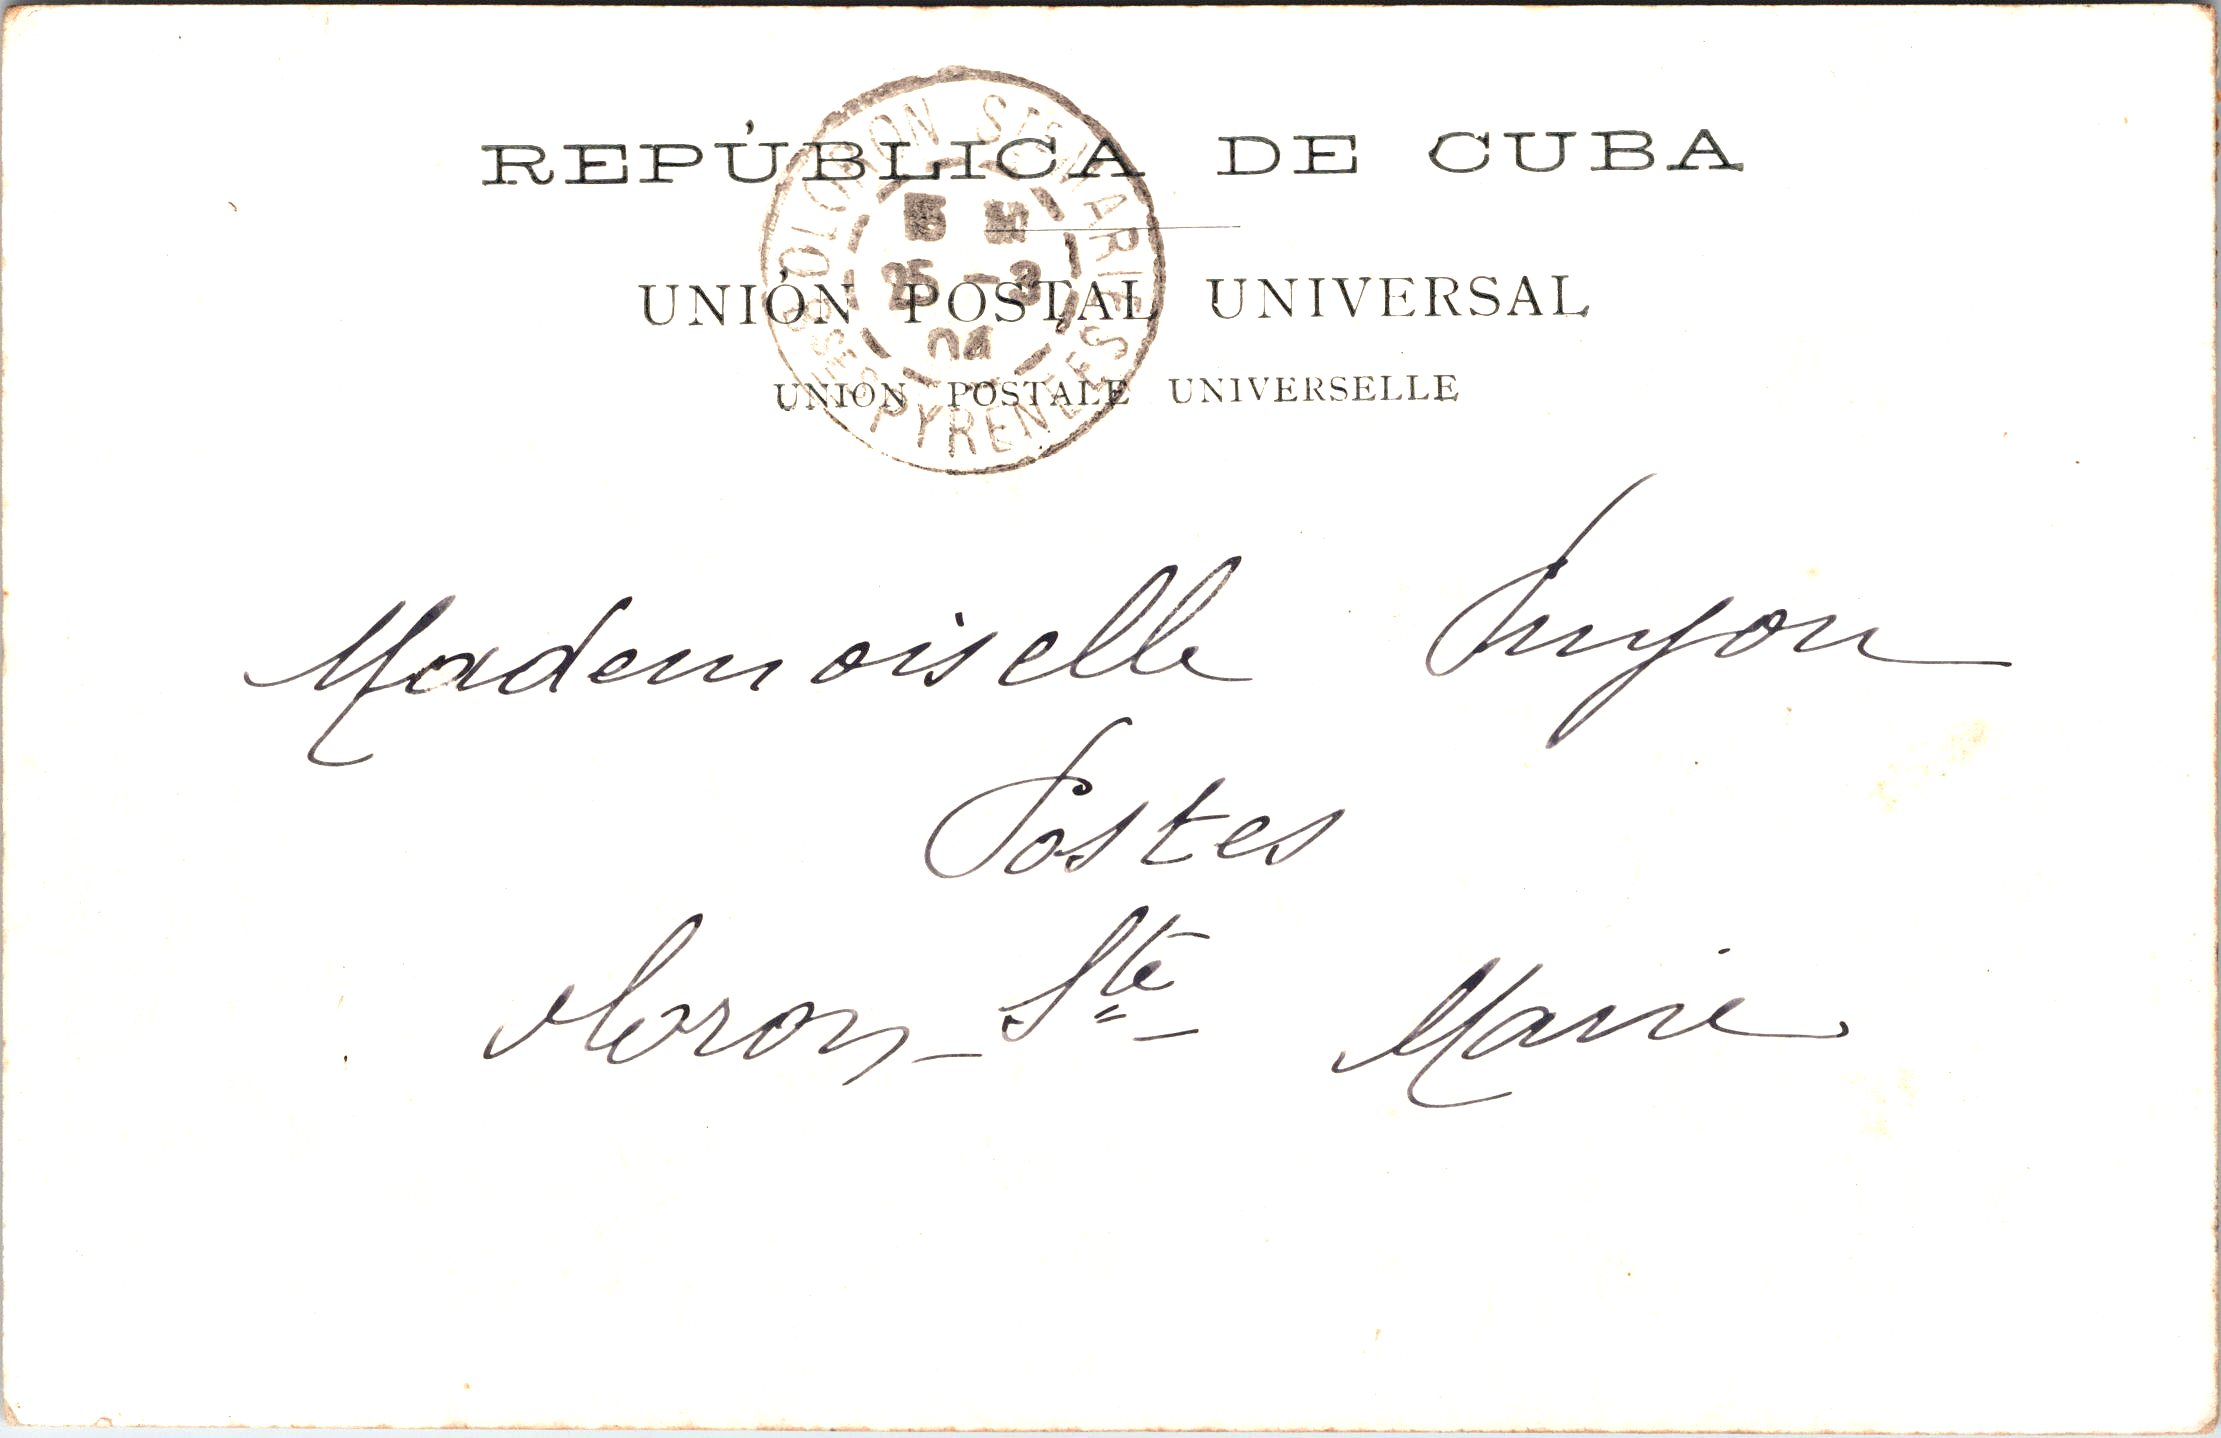 REPÚBLICA DE CUBA
UNIÓN POSTAL UNIVERSAL
UNION POSTALE UNIVERSELLE
OLORON STE MARIE
25 -3
04
BSES PYRENEES
Mademoiselle
Postes
Oloron - Ste Marie